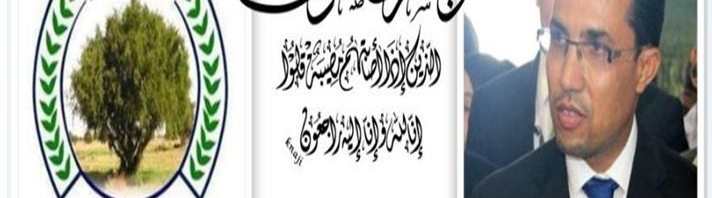 الذين إذا أصابتهم مصيبة قالوا
إنا لله وإنا إليه راجعون
Enaji